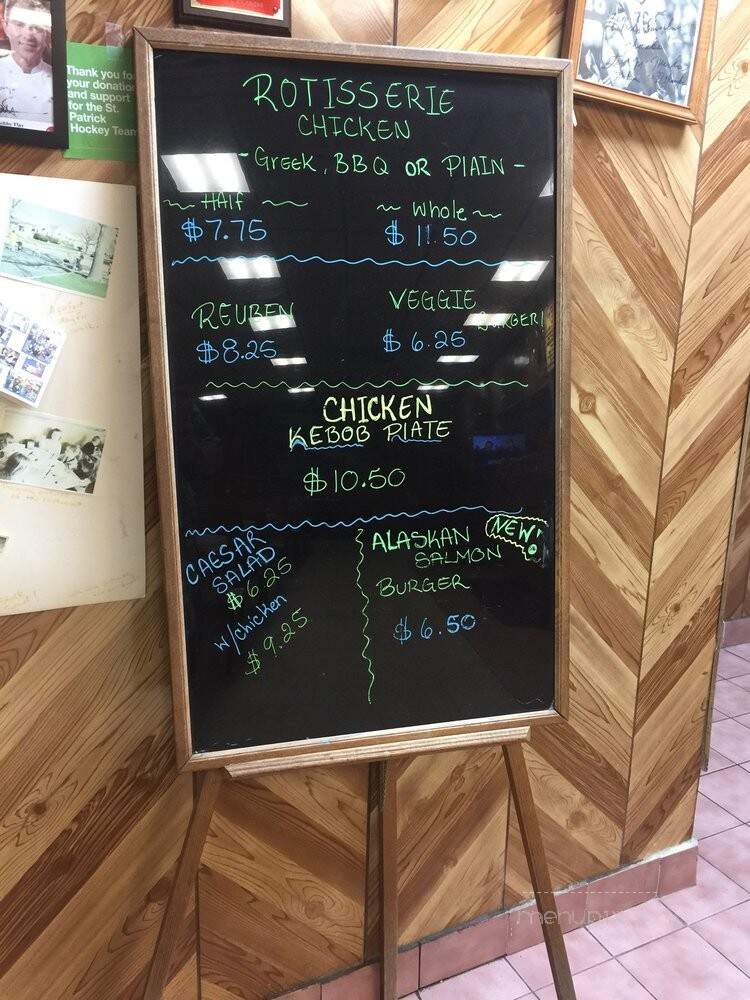 Thank you for
your donation
and support
for the St.
Patrick
Hockey Team
ROTISSERIE
CHICKEN
- Greek, BBQ OR PLAIN -
~ HALF ~
$7.75
~ Whole ~
$ 11.50
REUBEN
$8.25
VEGGIE
BURGER!
$ 6.25
CHICKEN
KEBOB PLATE
$10.50
CAESAR
SALAD
$6.25
w/chicken
$9.25
ALASKAN
SALMON
BURGER
NEW!
$6.50
menupix